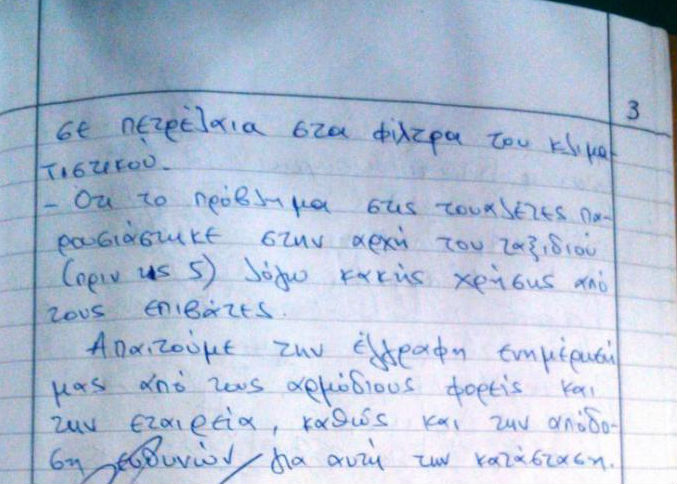 3
σε πετρέλαια στα φίλτρα του κλιμα-
τιστικού.
- Οτι το πρόβλημα στις τουαλέτες πα-
ρουσιάστηκε στην αρχή του ταξιδιού
(πριν τις 5) λόγω κακής χρήσης από
τους επιβάτες.
Απαιτούμε την έγγραφη ενημέρωσή
μας από τους αρμόδιους φορείς και
την εταιρεία, καθώς και την απόδο-
ση ευθυνών για αυτή την κατάσταση.